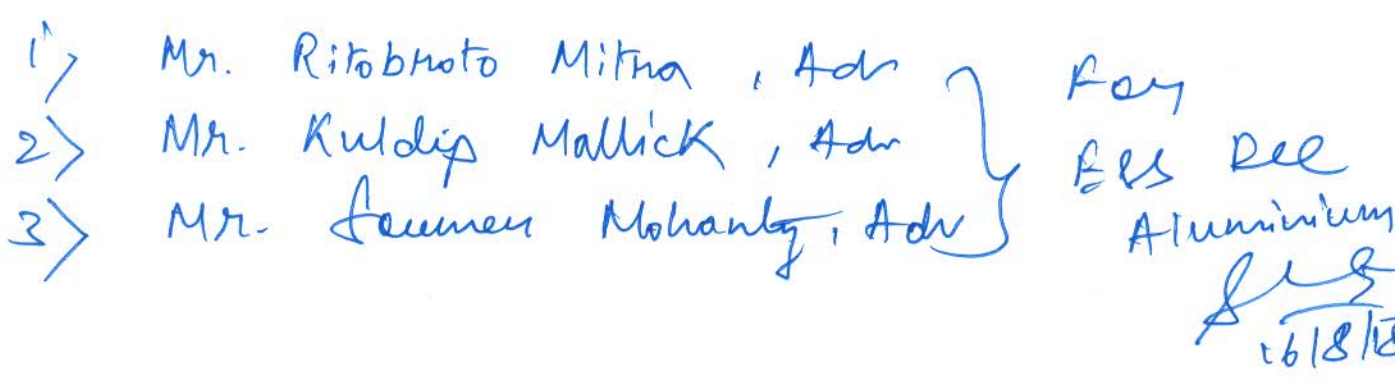 1) Mr. Ritobroto Mitra, Adv
2) Mr. Kuldip Mallick, Adv
3) Mr. Soumen Mohanty, Adv
For
ESS DEE
Aluminium
16/8/18